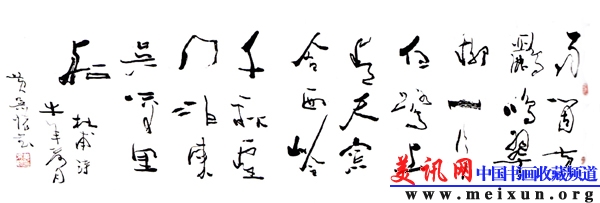 两箇黄
鸝鳴翠
柳一行
白鹭上
青天窗
含西岭
千秋雪
门泊東
吴萬里
船
杜甫诗
牛年
美讯网
中国书画收藏频道
www.meixun.org